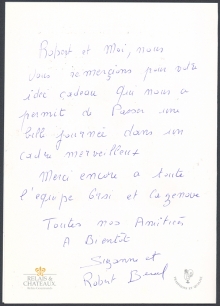 Robert et Moi, nous
Vous remercions pour votre
idée cadeau qui nous a
permit de Passer une
belle journée dans un
cadre merveilleux
Merci encore a toute
l'équipe et
Toutes nos Amitiés
A Bientôt
Suzanne et
Robert
RELAIS &
CHATEAUX